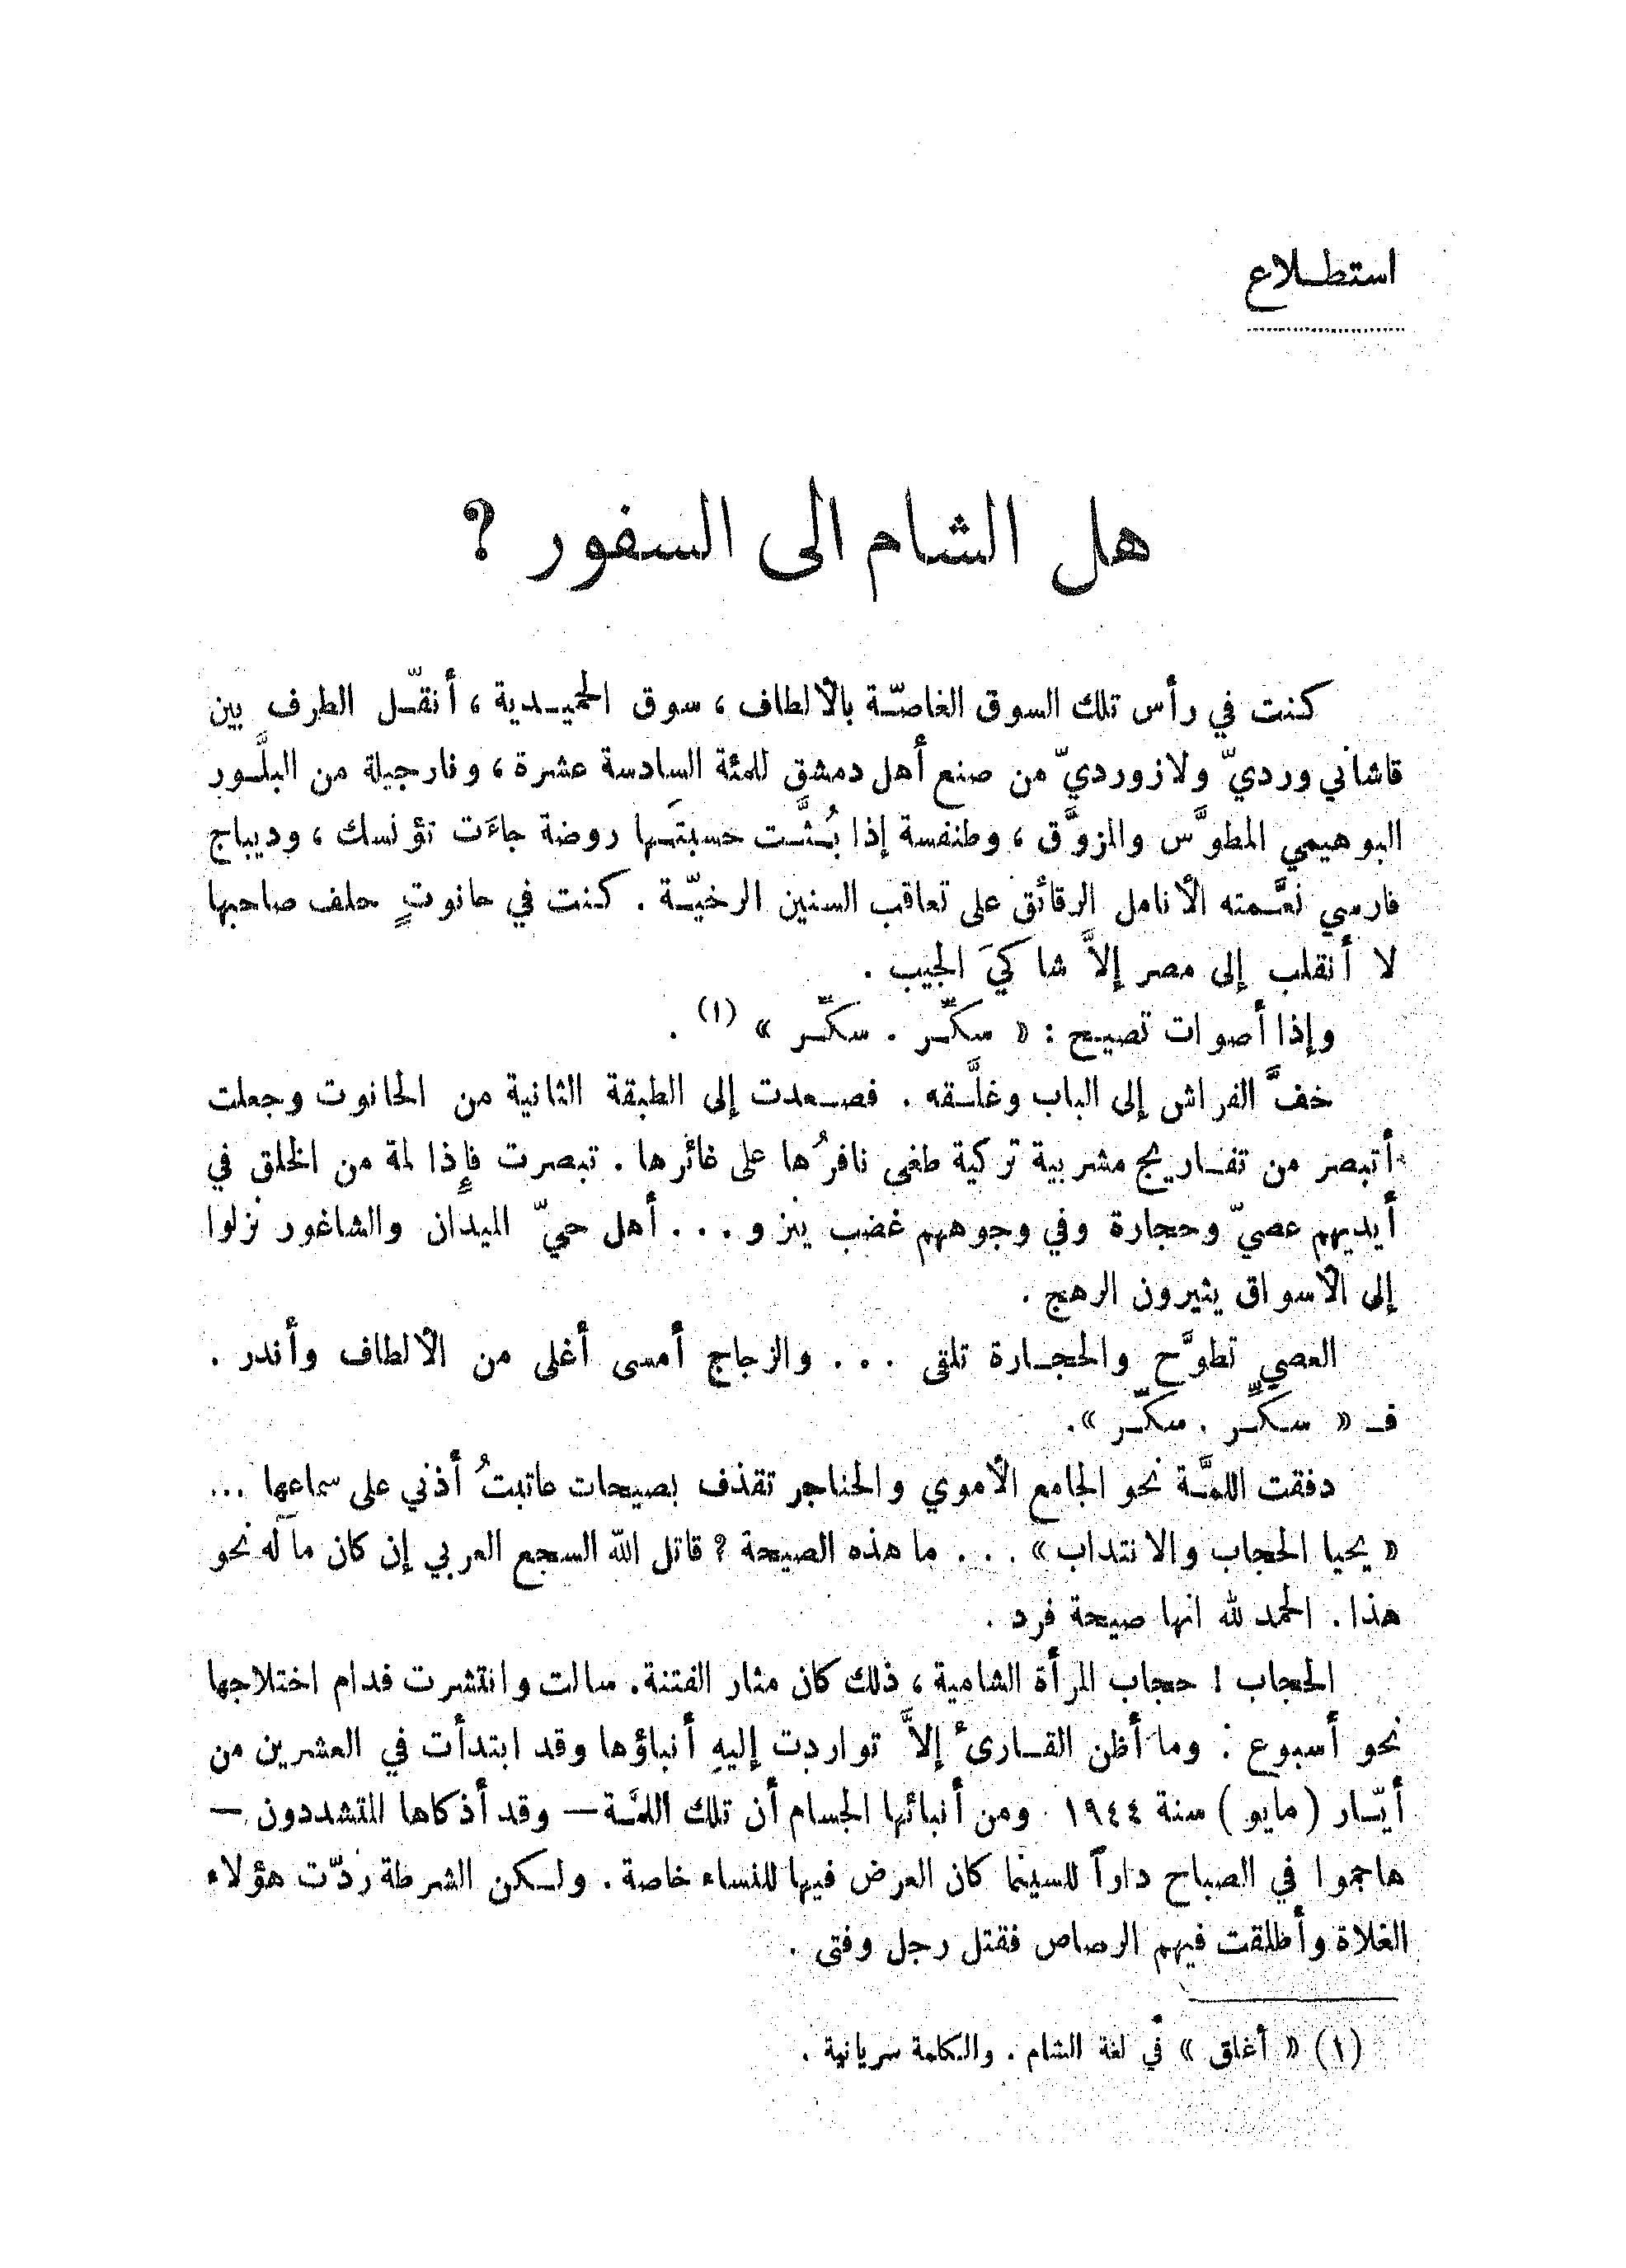 استطلاع
هل الشام الى السفور ؟
كنت في رأس تلك السوق الغاصّة بالألطاف ، سوق الحميدية ، أنقّل الطرف بين
قاشاني ورديّ ولازورديّ من صنع أهل دمشق للمئة السادسة عشرة ، ونارجيلة من البلَّور
البوهيمي المطوَّس والمزوَّق ، وطنفسة إذا بُثَّت حسبتَها روضة جاءَت تؤنسك ، وديباج
فارسي نعَّمته الأنامل الرقائق على تعاقب السنين الرخيّة . كنت في حانوتٍ حلف صاحبها
لا أنقلب إلى مصر إلاَّ شاكيَ الجيب .
وإذا أصوات تصيح : « سكّر . سكّر » (١) .
خفَّ الفراش إلى الباب وغلَّقه . فصعدت إلى الطبقة الثانية من الحانوت وجعلت
أتبصر من تفاريج مشربية تركية طغى نافرُها على غائرها . تبصرت فإذا لمة من الخلق في
أيديهم عصيّ وحجارة وفي وجوههم غضب ينزو . . . أهل حيّ الميدان والشاغور نزلوا
إلى الأسواق يثيرون الرهج .
العصي تطوَّح والحجارة تلقى . . . والزجاج أمسى أغلى من الألطاف وأندر .
فـ « سكّر . سكّر ».
دفقت اللمَّة نحو الجامع الأموي والحناجر تقذف بصيحات عاتبتُ أذني على سماعها ...
« يحيا الحجاب والانتداب» . . . ما هذه الصيحة ؟ قاتل الله السجع العربي إن كان مآله نحو
هذا . الحمد لله انها صيحة فرد .
الحجاب ! حجاب المرأة الشامية ، ذلك كان مثار الفتنة . سالت وانتشرت فدام اختلاجها
نحو أسبوع : وما أظن القارئ إلاَّ تواردت إليهِ أنباؤها وقد ابتدأت في العشرين من
أيّار (مايو ) سنة ١٩٤٤ . ومن أنبائها الجسام أن تلك اللمَّة — وقد أذكاها المتشددون —
هاجموا في الصباح داراً للسينما كان العرض فيها للنساء خاصة . ولكن الشرطة ردّت هؤلاء
الغلاة وأطلقت فيهم الرصاص فقتل رجل وفتى .
(١) « أغلق » في لغة الشام . والكلمة سريانية .